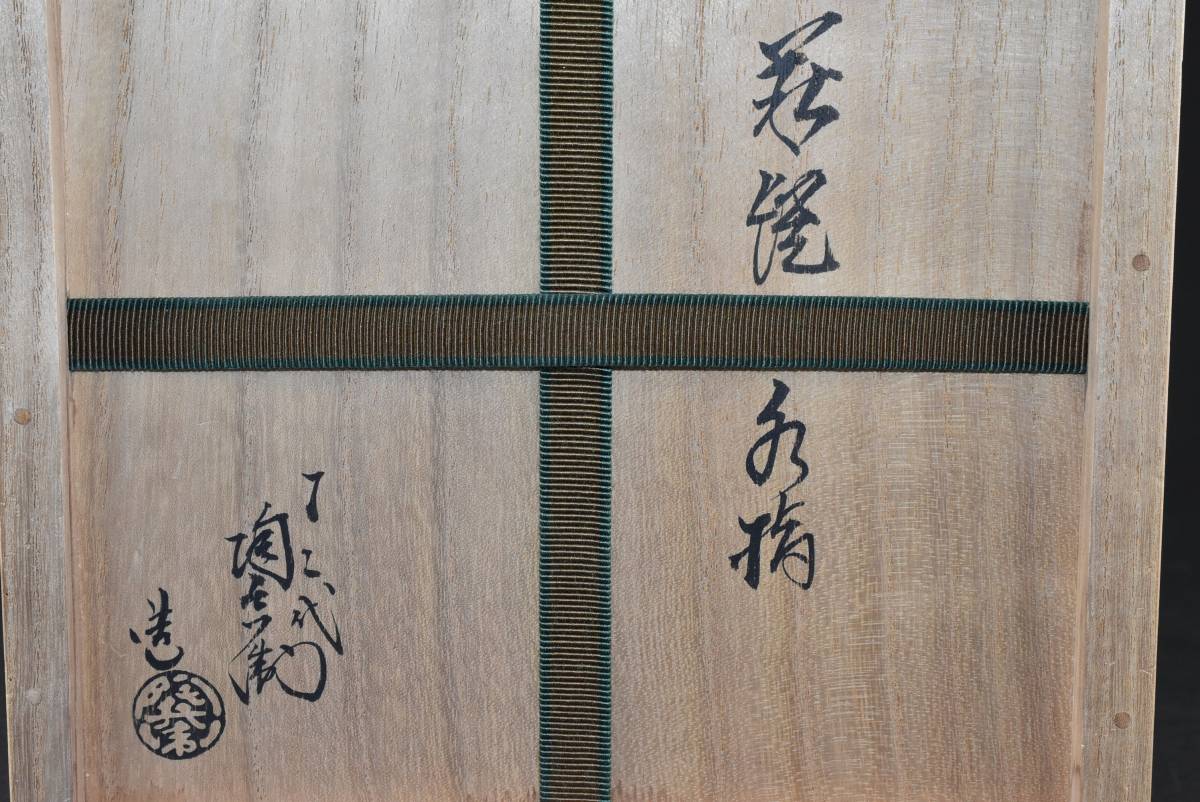 萩焼 水指
十二代
陶兵衛
造